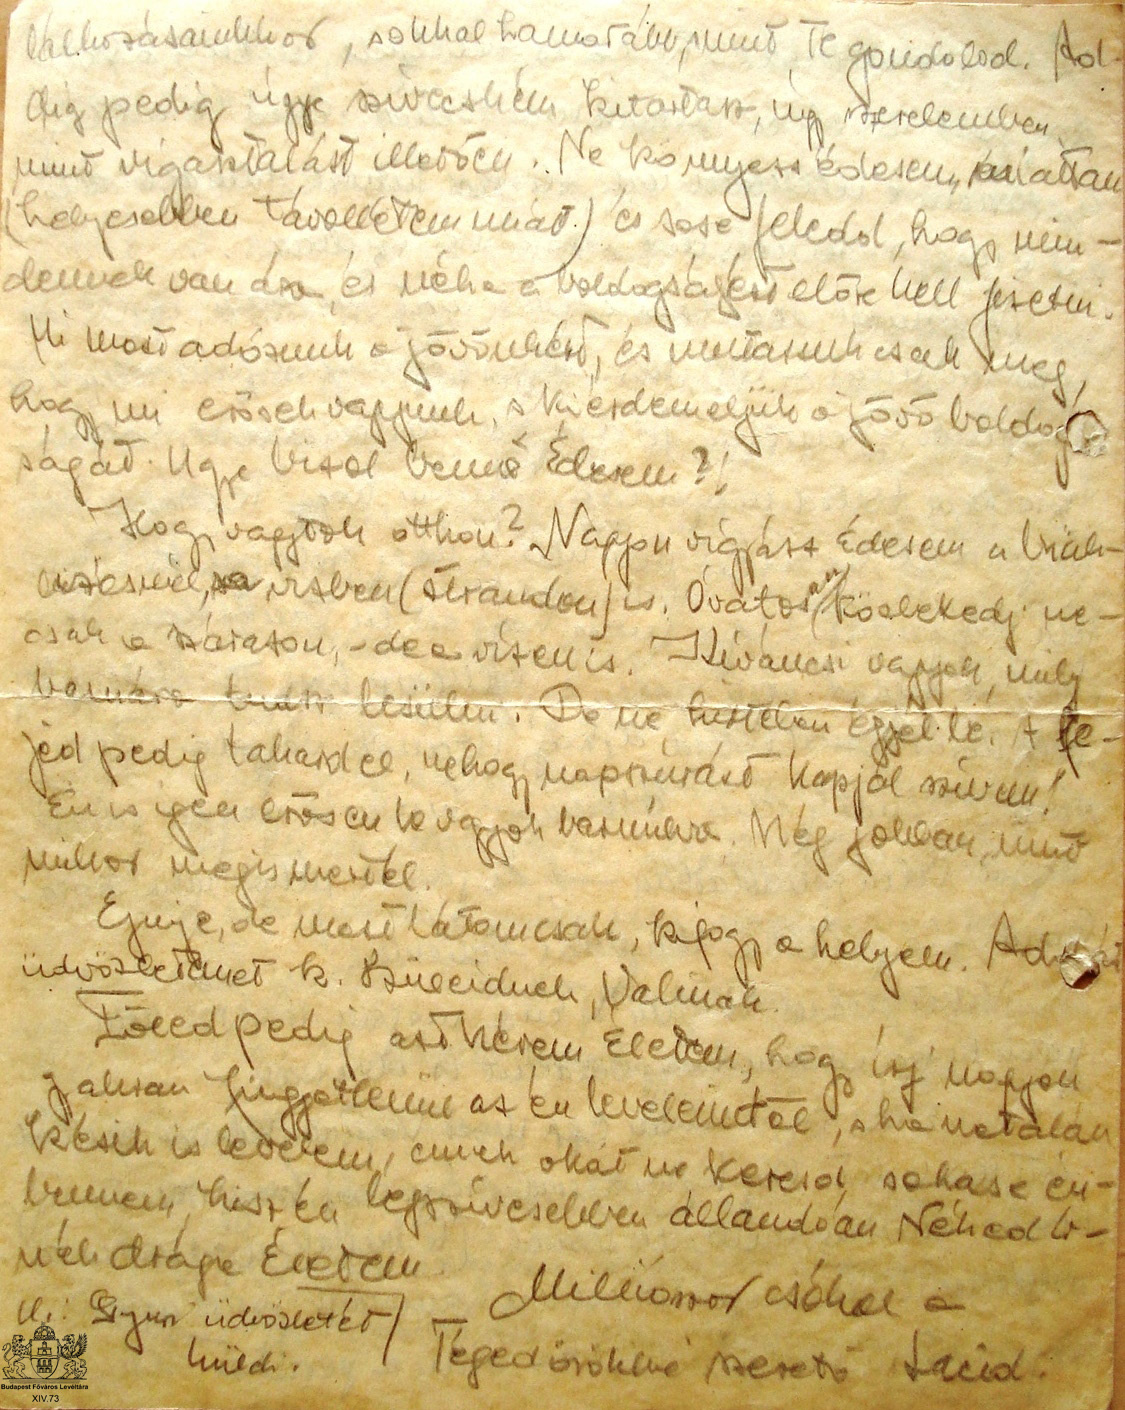 találkozásainkkor, sokkal hamarább, mint Te gondolod. Ad-
dig pedig ugye szívecském kitartasz, úgy szerelemben,
mint vigasztalást illetően. Ne könnyezz édesem, miattam
(helyesebben távollétem miatt) és sose feledd, hogy min-
dennek van ára, és néha a boldogságért előre kell fizetni.
Mi most adózunk a jövőnkért, és mutassuk csak meg,
hogy mi erősek vagyunk, s kiérdemeljük a jövő boldog-
ságát. Ugye bízol benne Édesem?!
Hogy vagytok otthon? Nagyon vigyázz Édesem a
vízben (strandon) is. Óvatosan közlekedj ne-
csak a szárazon, - de a vízen is. Kíváncsi vagyok, mily
barnára tudsz lesülni. De ne hirtelen égjél le. A fe-
jed pedig takard el, nehogy napszúrást kapjál szívem!
Én is igen erősen le vagyok barnulva. Még jobban, mint
mikor megismertél.
Ejnye, de most látom csak, kifogy a helyem.
üdvözletemet k. Szüleidnek, Valinak.
Tőled pedig azt kérem Életem, hogy írj nagyon
gyakran függetlenül az én leveleimtől, s ha netalán
késik is levelem, ennek okát ne keresd sohase én-
bennem, hisz én legszívesebben állandóan Néked ír-
nék drága Életem
Milliószor csókol a
Téged örökké szerető Lacid.
U.i. Gyuri üdvözletét
küldi.
Budapest Főváros Levéltára
XIV.73